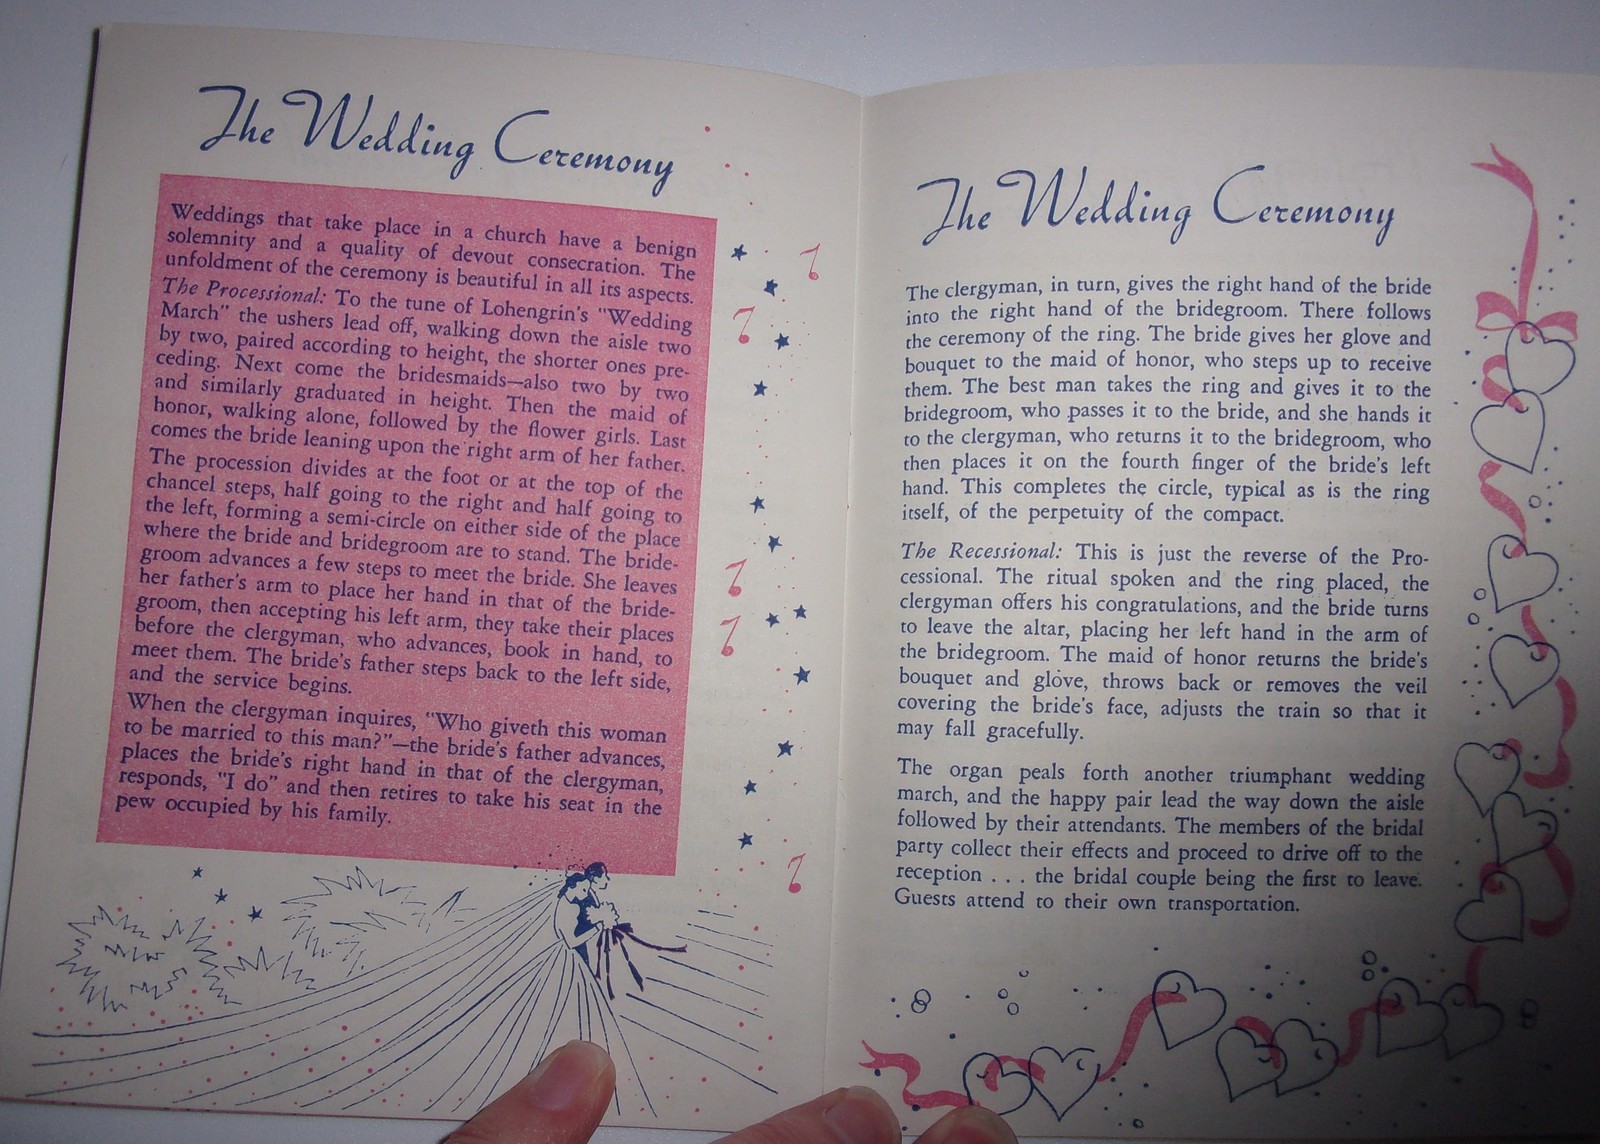 The Wedding Ceremony
Weddings that take place in a church have a benign
solemnity and a quality of devout consecration. The
unfoldment of the ceremony is beautiful in all its aspects.
The Processional: To the tune of Lohengrin's "Wedding
March" the ushers lead off, walking down the aisle two
by two, paired according to height, the shorter ones pre-
ceding. Next come the bridesmaids—also two by two
and similarly graduated in height. Then the maid of
honor, walking alone, followed by the flower girls. Last
comes the bride leaning upon the right arm of her father.
The procession divides at the foot or at the top of the
chancel steps, half going to the right and half going to
the left, forming a semi-circle on either side of the place
where the bride and bridegroom are to stand. The bride-
groom advances a few steps to meet the bride. She leaves
her father's arm to place her hand in that of the bride-
groom, then accepting his left arm, they take their places
before the clergyman, who advances, book in hand, to
meet them. The bride's father steps back to the left side,
and the service begins.
When the clergyman inquires, "Who giveth this woman
to be married to this man?"—the bride's father advances,
places the bride's right hand in that of the clergyman,
responds, "I do" and then retires to take his seat in the
pew occupied by his family.
The Wedding Ceremony
The clergyman, in turn, gives the right hand of the bride
into the right hand of the bridegroom. There follows
the ceremony of the ring. The bride gives her glove and
bouquet to the maid of honor, who steps up to receive
them. The best man takes the ring and gives it to the
bridegroom, who passes it to the bride, and she hands it
to the clergyman, who returns it to the bridegroom, who
then places it on the fourth finger of the bride's left
hand. This completes the circle, typical as is the ring
itself, of the perpetuity of the compact.
The Recessional: This is just the reverse of the Pro-
cessional. The ritual spoken and the ring placed, the
clergyman offers his congratulations, and the bride turns
to leave the altar, placing her left hand in the arm of
the bridegroom. The maid of honor returns the bride's
bouquet and glove, throws back or removes the veil
covering the bride's face, adjusts the train so that it
may fall gracefully.
The organ peals forth another triumphant wedding
march, and the happy pair lead the way down the aisle
followed by their attendants. The members of the bridal
party collect their effects and proceed to drive off to the
reception . . . the bridal couple being the first to leave.
Guests attend to their own transportation.